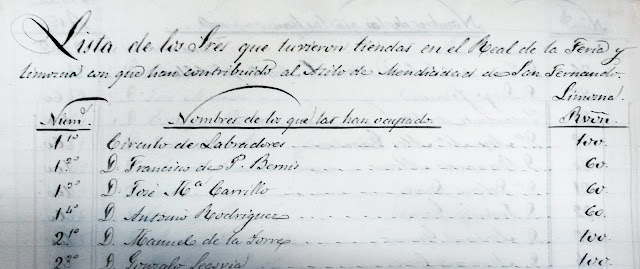 Lista de los Sres que tuvieron tiendas en el Real de la Feria y
limosna con que han contribuido al Asilo de Mendicidad de San Fernando.
Limosna
Núms. Nombres de los que las han ocupado. Rvón.
1.1º Círculo de Labradores 100.
1.2º D. Francisco de P. Bernis 60.
1.3º D. José Mª Carrillo 60.
1.4º D. Antonio Rodríguez 60.
2.1º D. Manuel de la Torre 100.
2.2º D. Gonzalo Segovia 100.